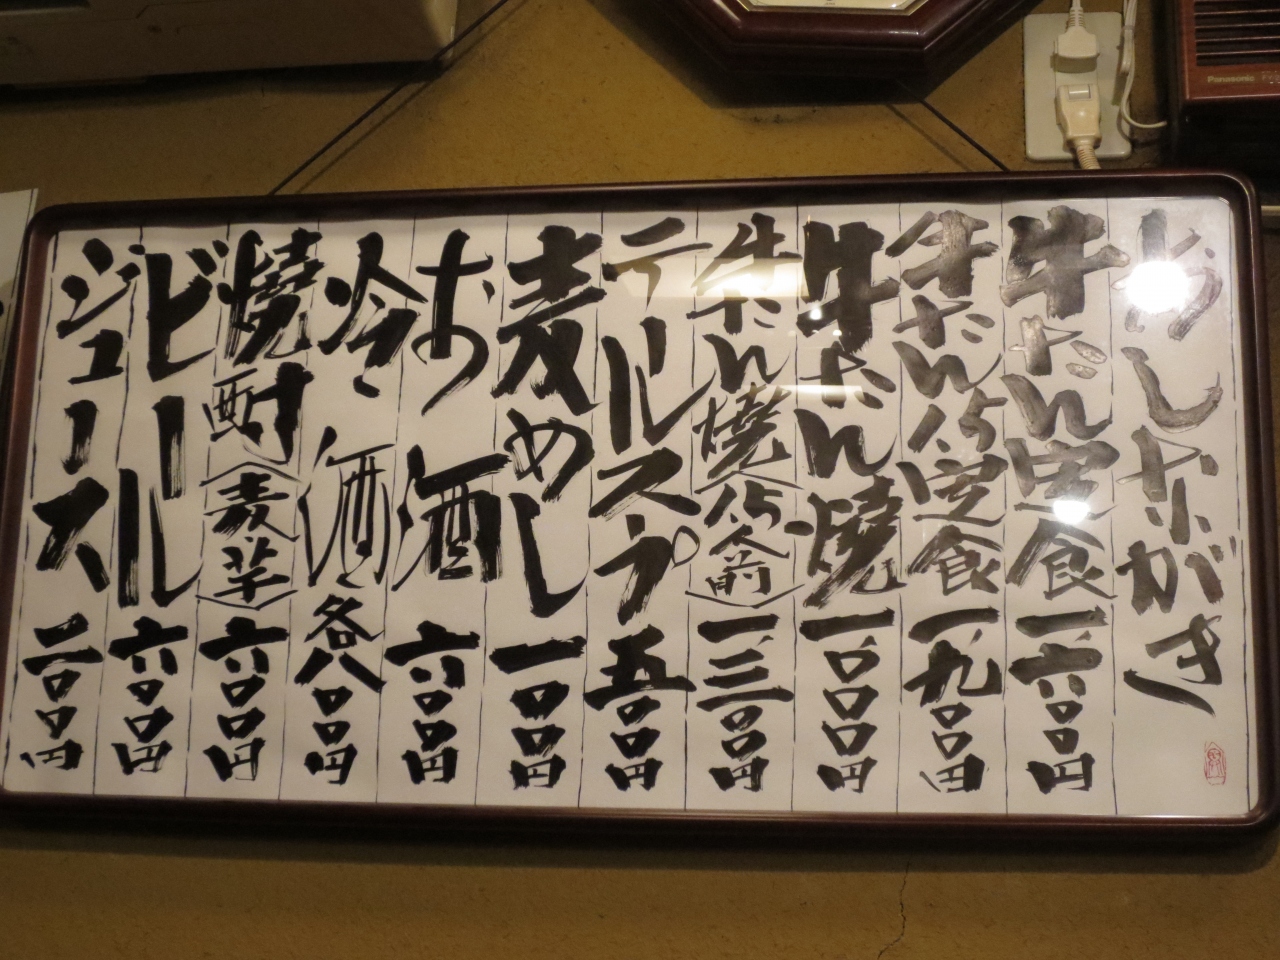 おしながき
牛たん定食 一、六〇〇円
牛たん1.5定食 一、九〇〇円
牛たん焼 一、〇〇〇円
牛たん焼(1.5人前) 一、三〇〇円
テールスープ 五〇〇円
麦めし 一〇〇円
お酒 六〇〇円
冷酒 各八〇〇円
焼酎(麦・芋) 六〇〇円
ビール 六〇〇円
ジュース 二〇〇円
Panasonic